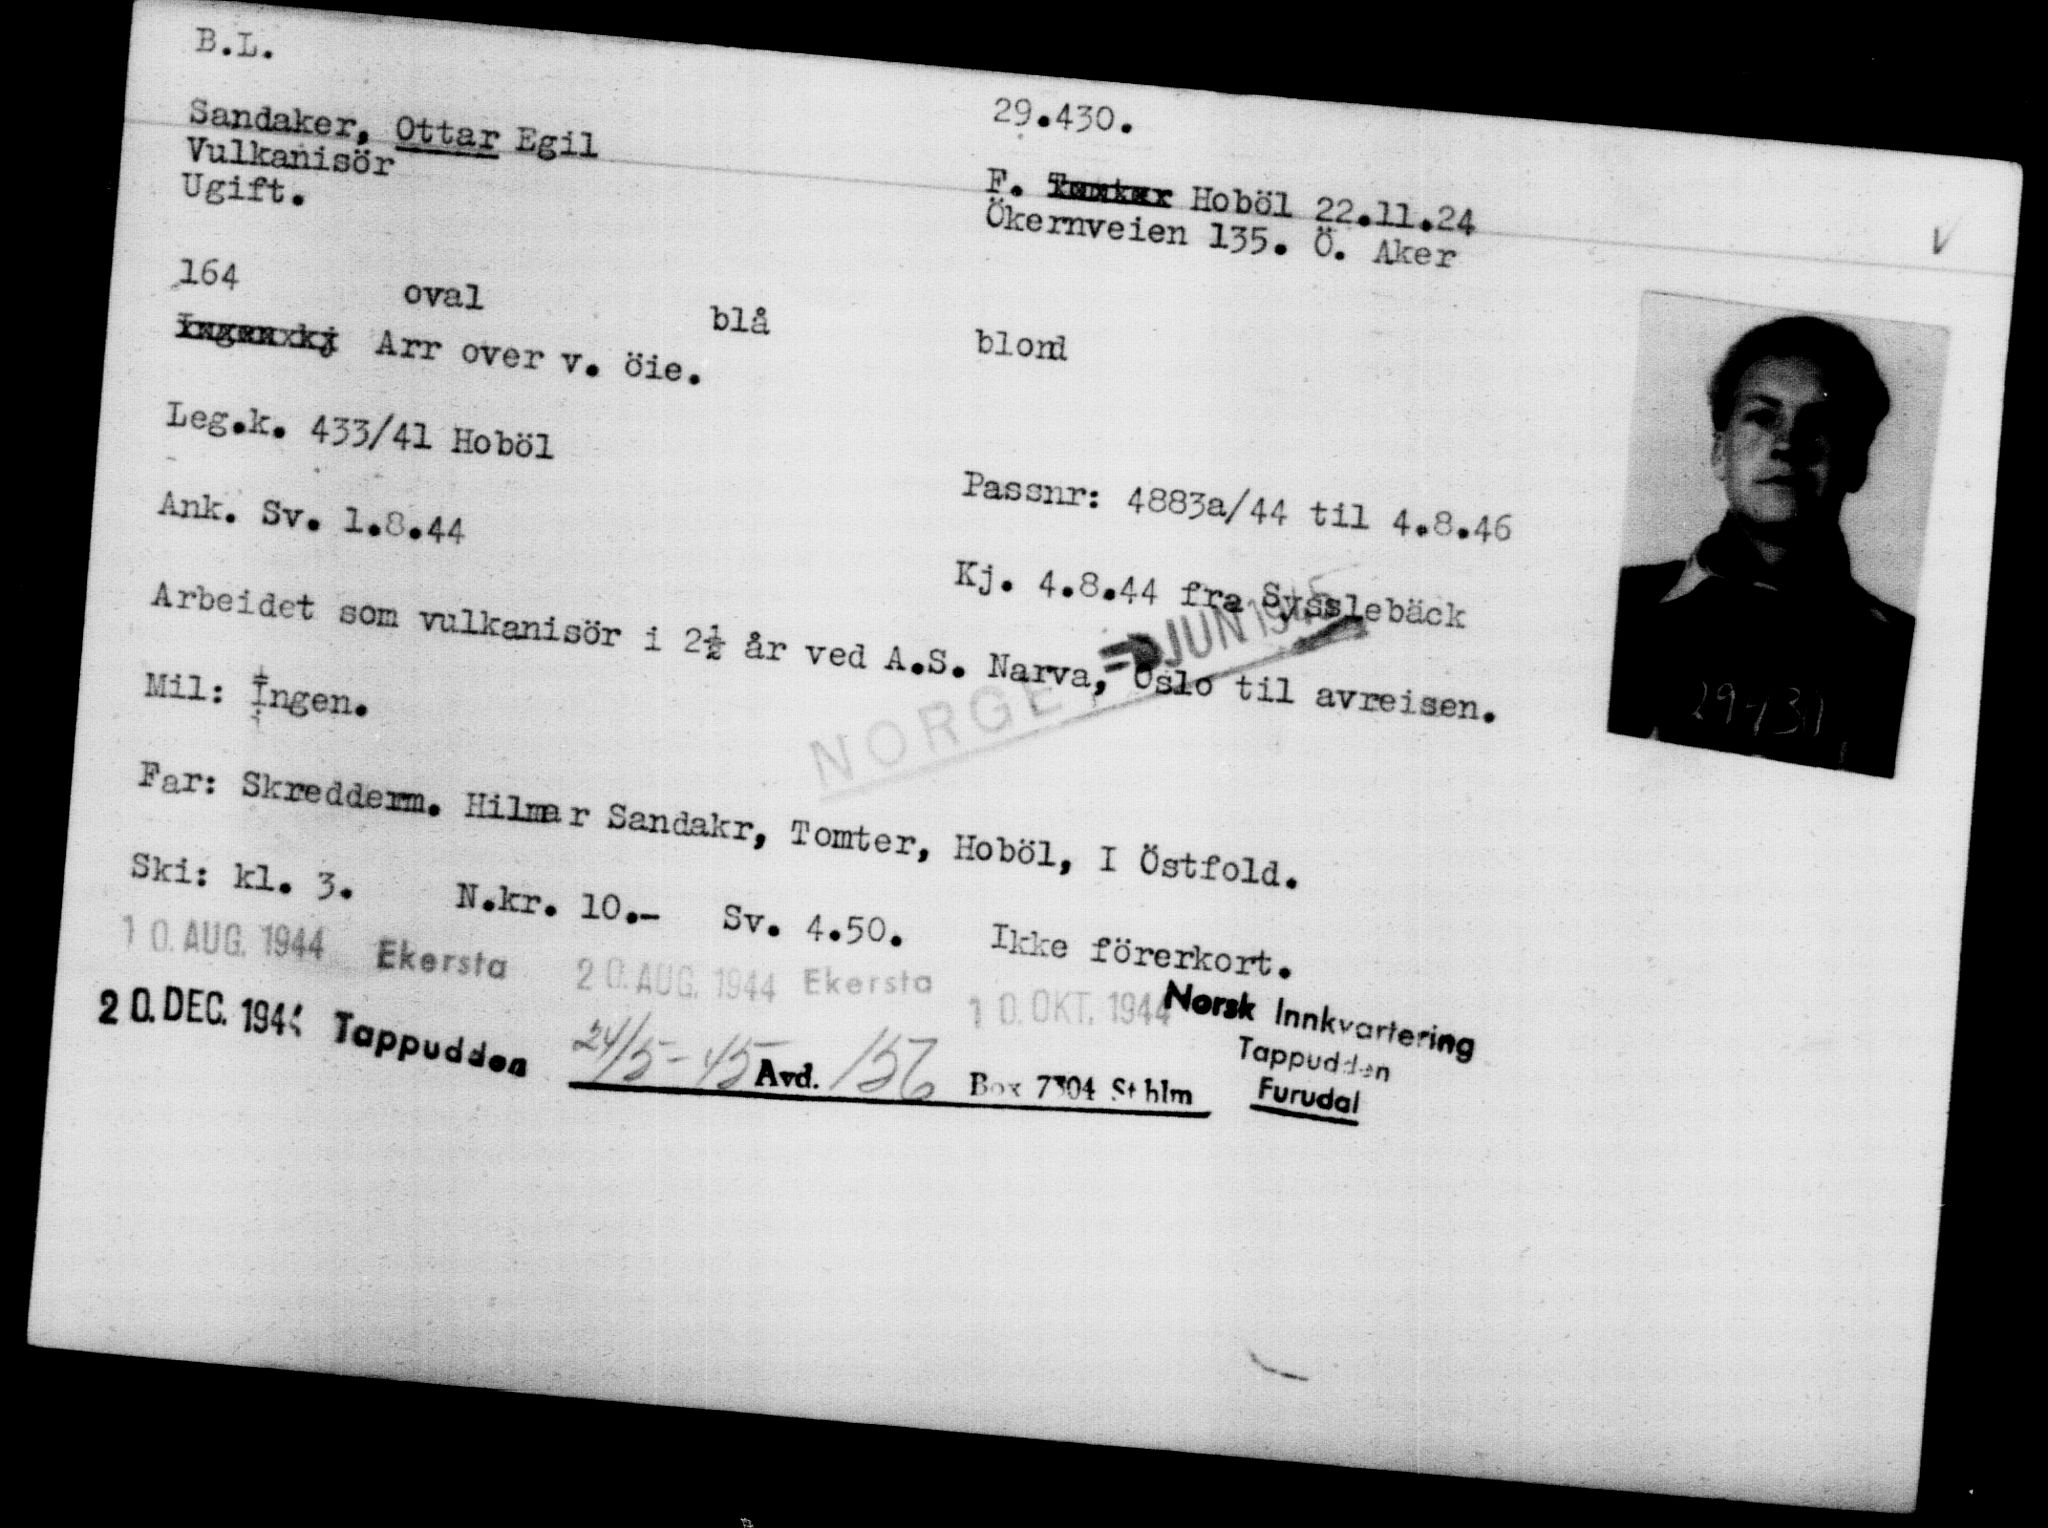 B.L.
29.430.
Sandaker, Ottar Egil
Vulkanisör
Ugift.
F. Tomter Hoböl 22.11.24
Ökernveien 135. Ö. Aker
164 oval blå blond
Ingen kj Arr over v. öie.
Leg.k. 433/41 Hoböl
Passnr: 4883a/44 til 4.8.46
Ank. Sv. 1.8.44
Kj. 4.8.44 fra Sysslebäck
Arbeidet som vulkanisör i 2½ år ved A.S. Narva, Oslo til avreisen.
NORGE JUN 1945
Mil: Ingen.
Far: Skredderm. Hilmar Sandakr, Tomter, Hoböl, I Östfold.
Ski: kl. 3. N.kr. 10.- Sv. 4.50. Ikke förerkort.
10. AUG. 1944 Ekersta 20. AUG. 1944 Ekersta 10. OKT. 1944
Norsk Innkvartering
Tappudden
Furudal
20. DEC. 1944 Tappudden
24/5-45 Avd. 156 Box 7304 Sthlm